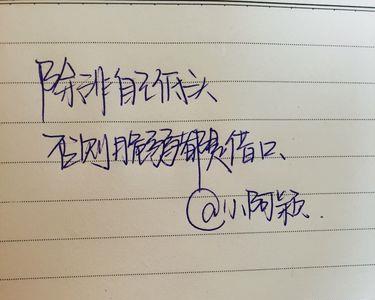 除非自己低头
否则脆弱都是借口
@小阿颖.